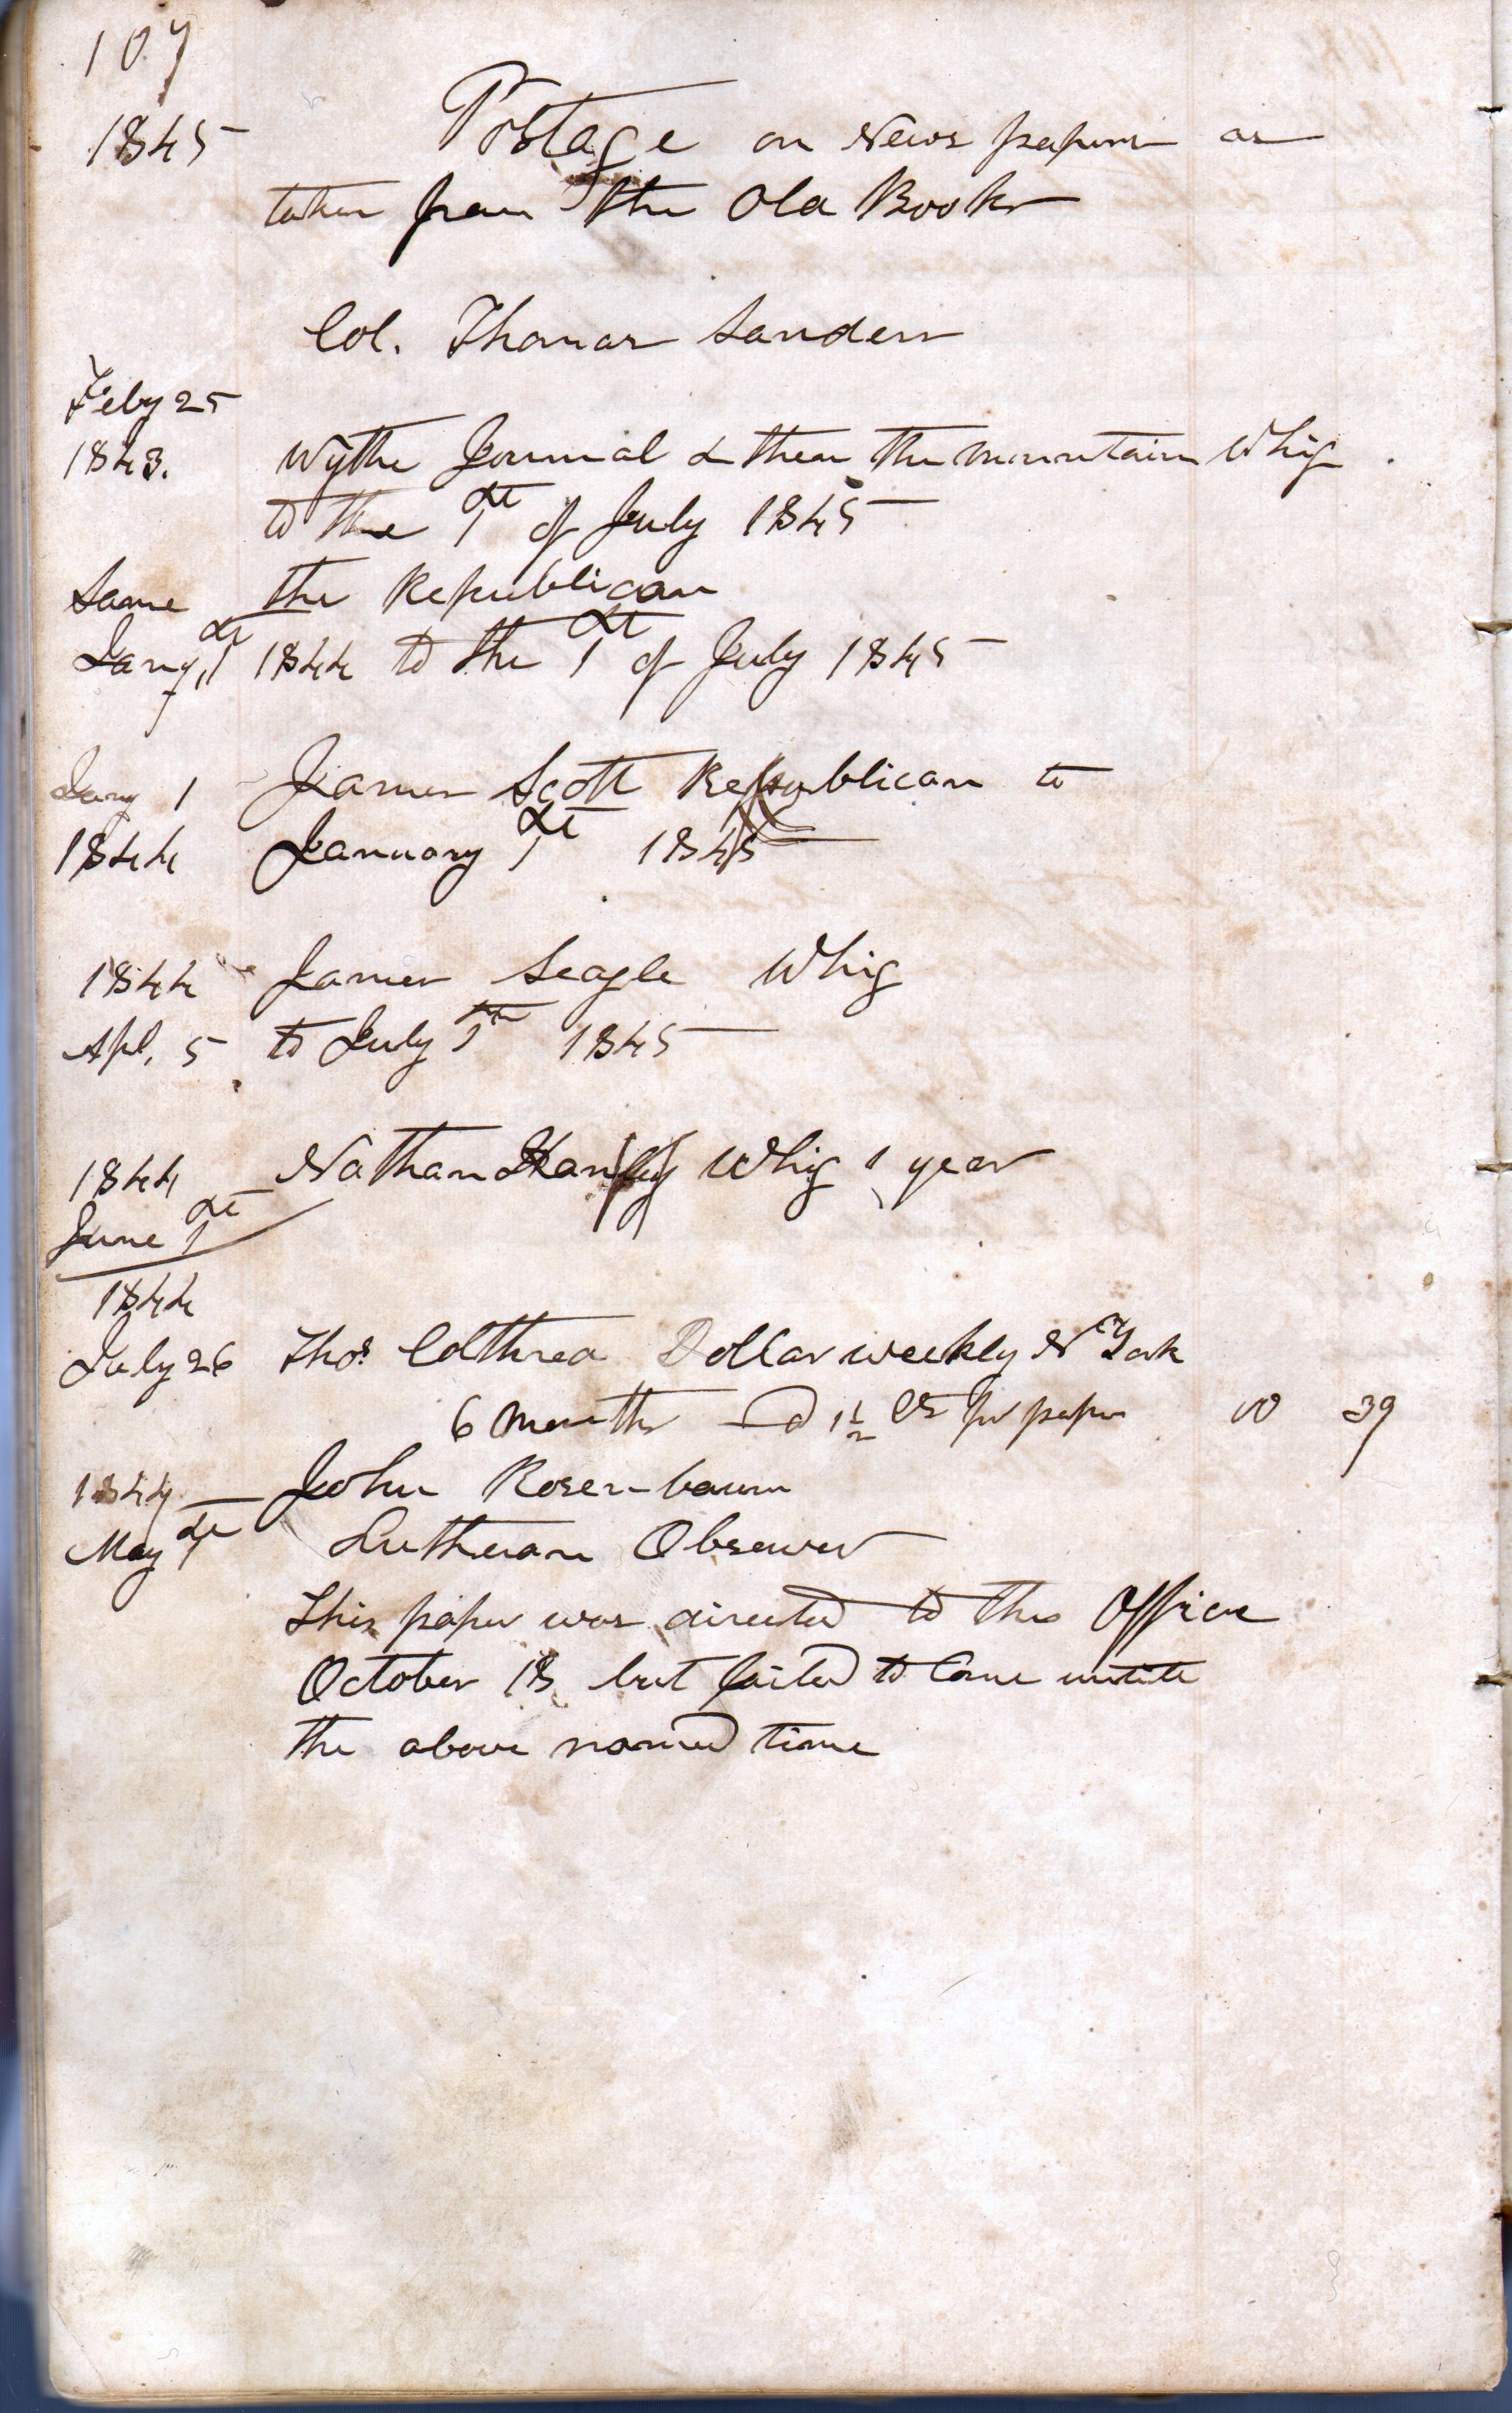 107
1845 Postage on News papers as
taken from the Old Books
Col. Thomas Sanders
Feby 25
1843. Wythe Journal & then the mountain Whig
to the 1st of July 1845
Same the Republican
Jany 1st 1844 to the 1st of July 1845
Jany 1 James Scott Republican to
1844 January 1st 1845
1844 James Seagle Whig
Apl. 5 to July 1st 1845
1844 Nathan Whig 1 year
June 1st
1844
July 26 Thos. Colthred Dollar weekly N York
6 months @ 1 1/2 Cts pr paper 00 39
1844 John Rosenbaum
May Lutheran Observer
This paper was directed to this Office
October 18 but failed to Come untill
the above named time